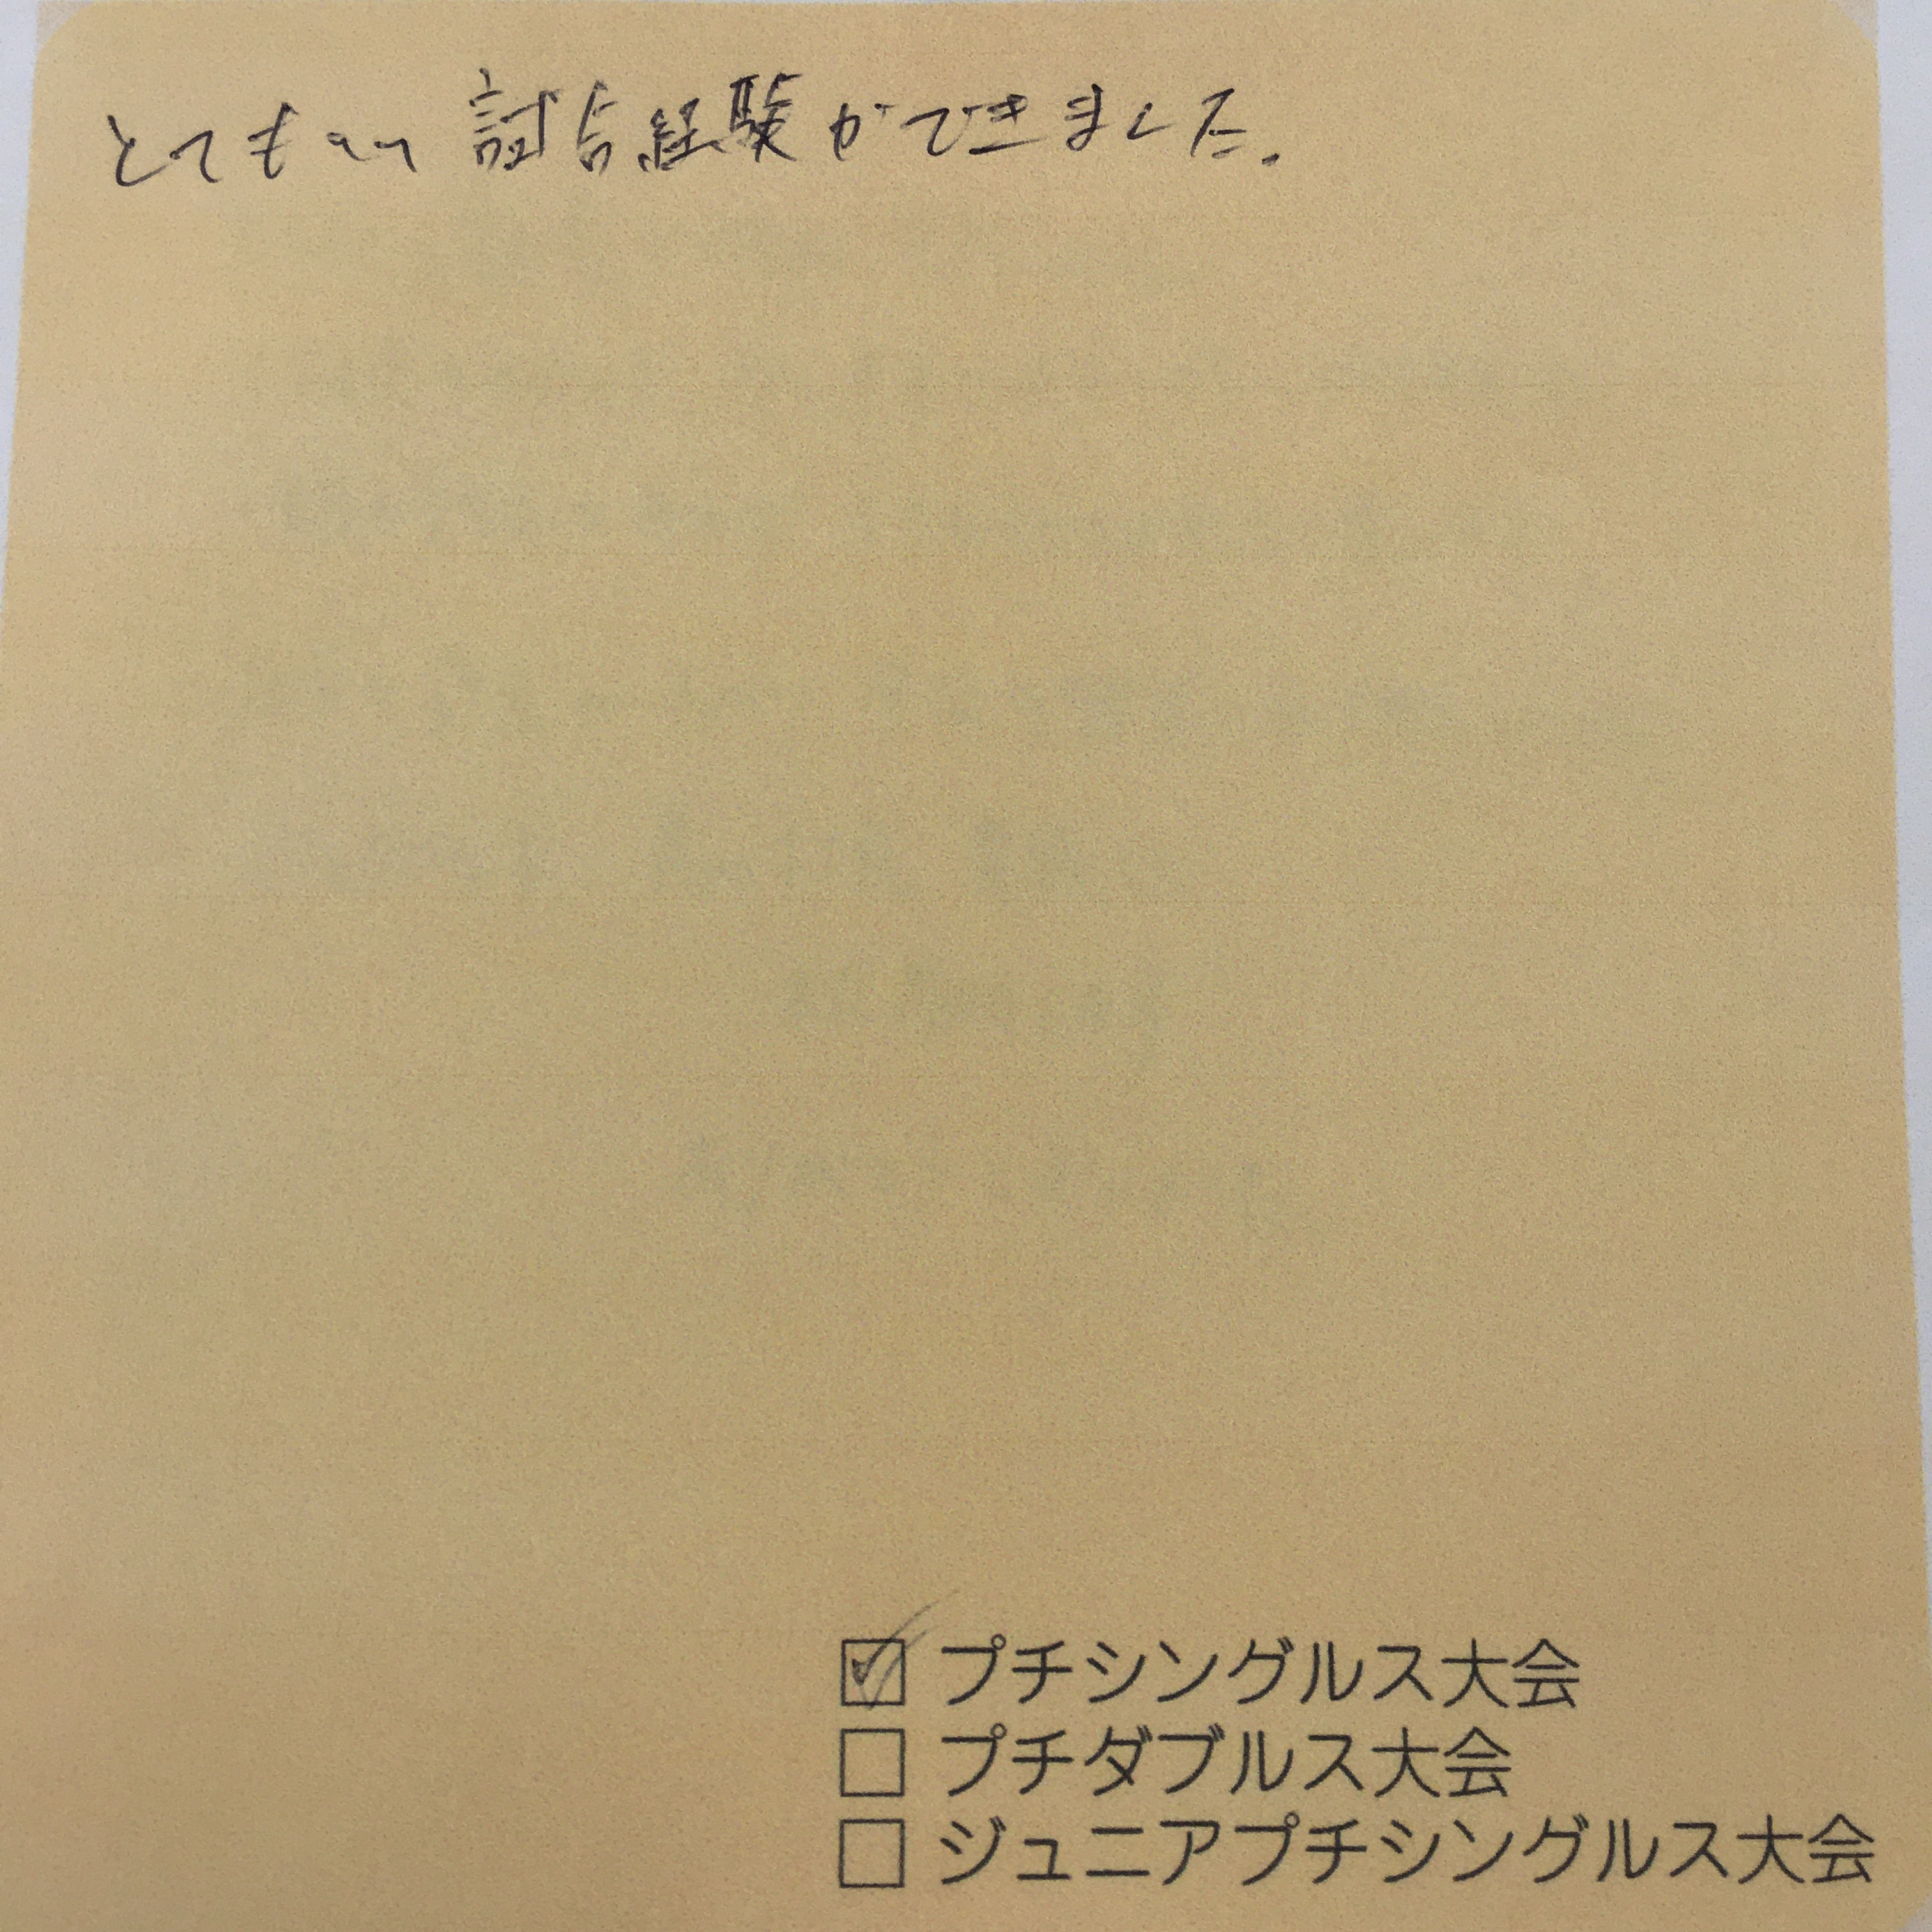 とてもいい試合経験ができました。
☑ プチシングルス大会
☐ プチダブルス大会
☐ ジュニアプチシングルス大会